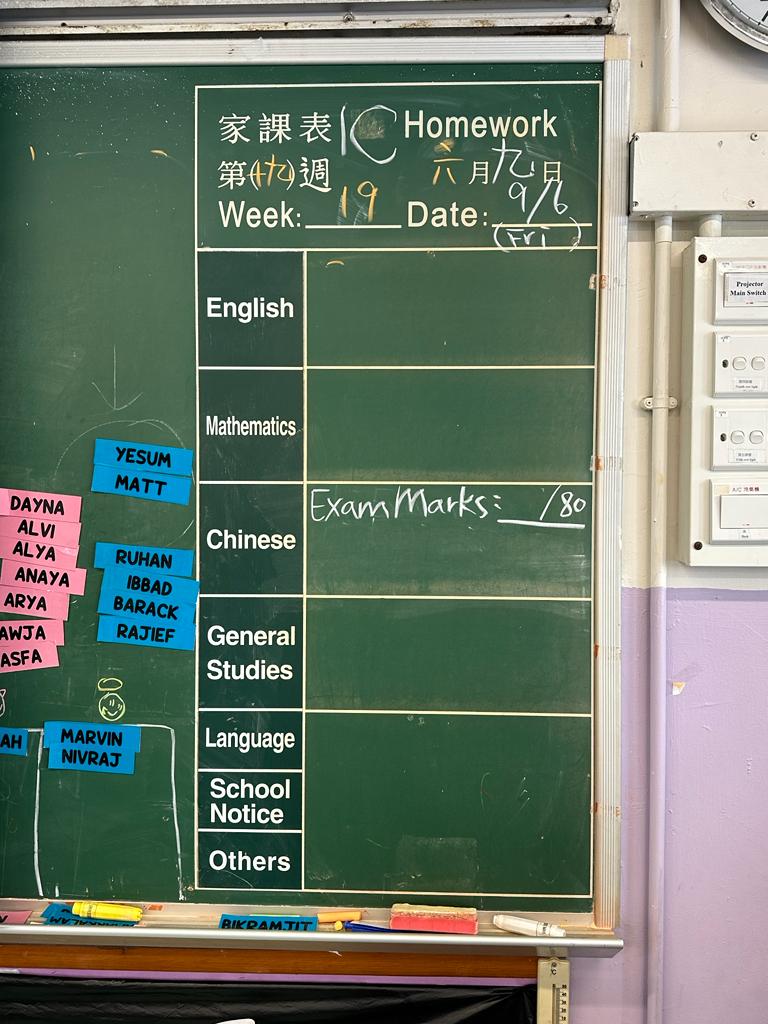 家課表 1C Homework
第(十九)週 六月九日
Week: 19 Date: 9/6
(Fri)
English
Mathematics
Chinese Exam Marks: /80
General
Studies
Language
School
Notice
Others
YESUM
MATT
DAYNA
ALVI
ALYA
ANAYA
ARYA
AWJA
ASFA
RUHAN
IBBAD
BARACK
RAJIEF
AH
MARVIN
NIVRAJ
BIKRAMJIT
Projector
Main Switch